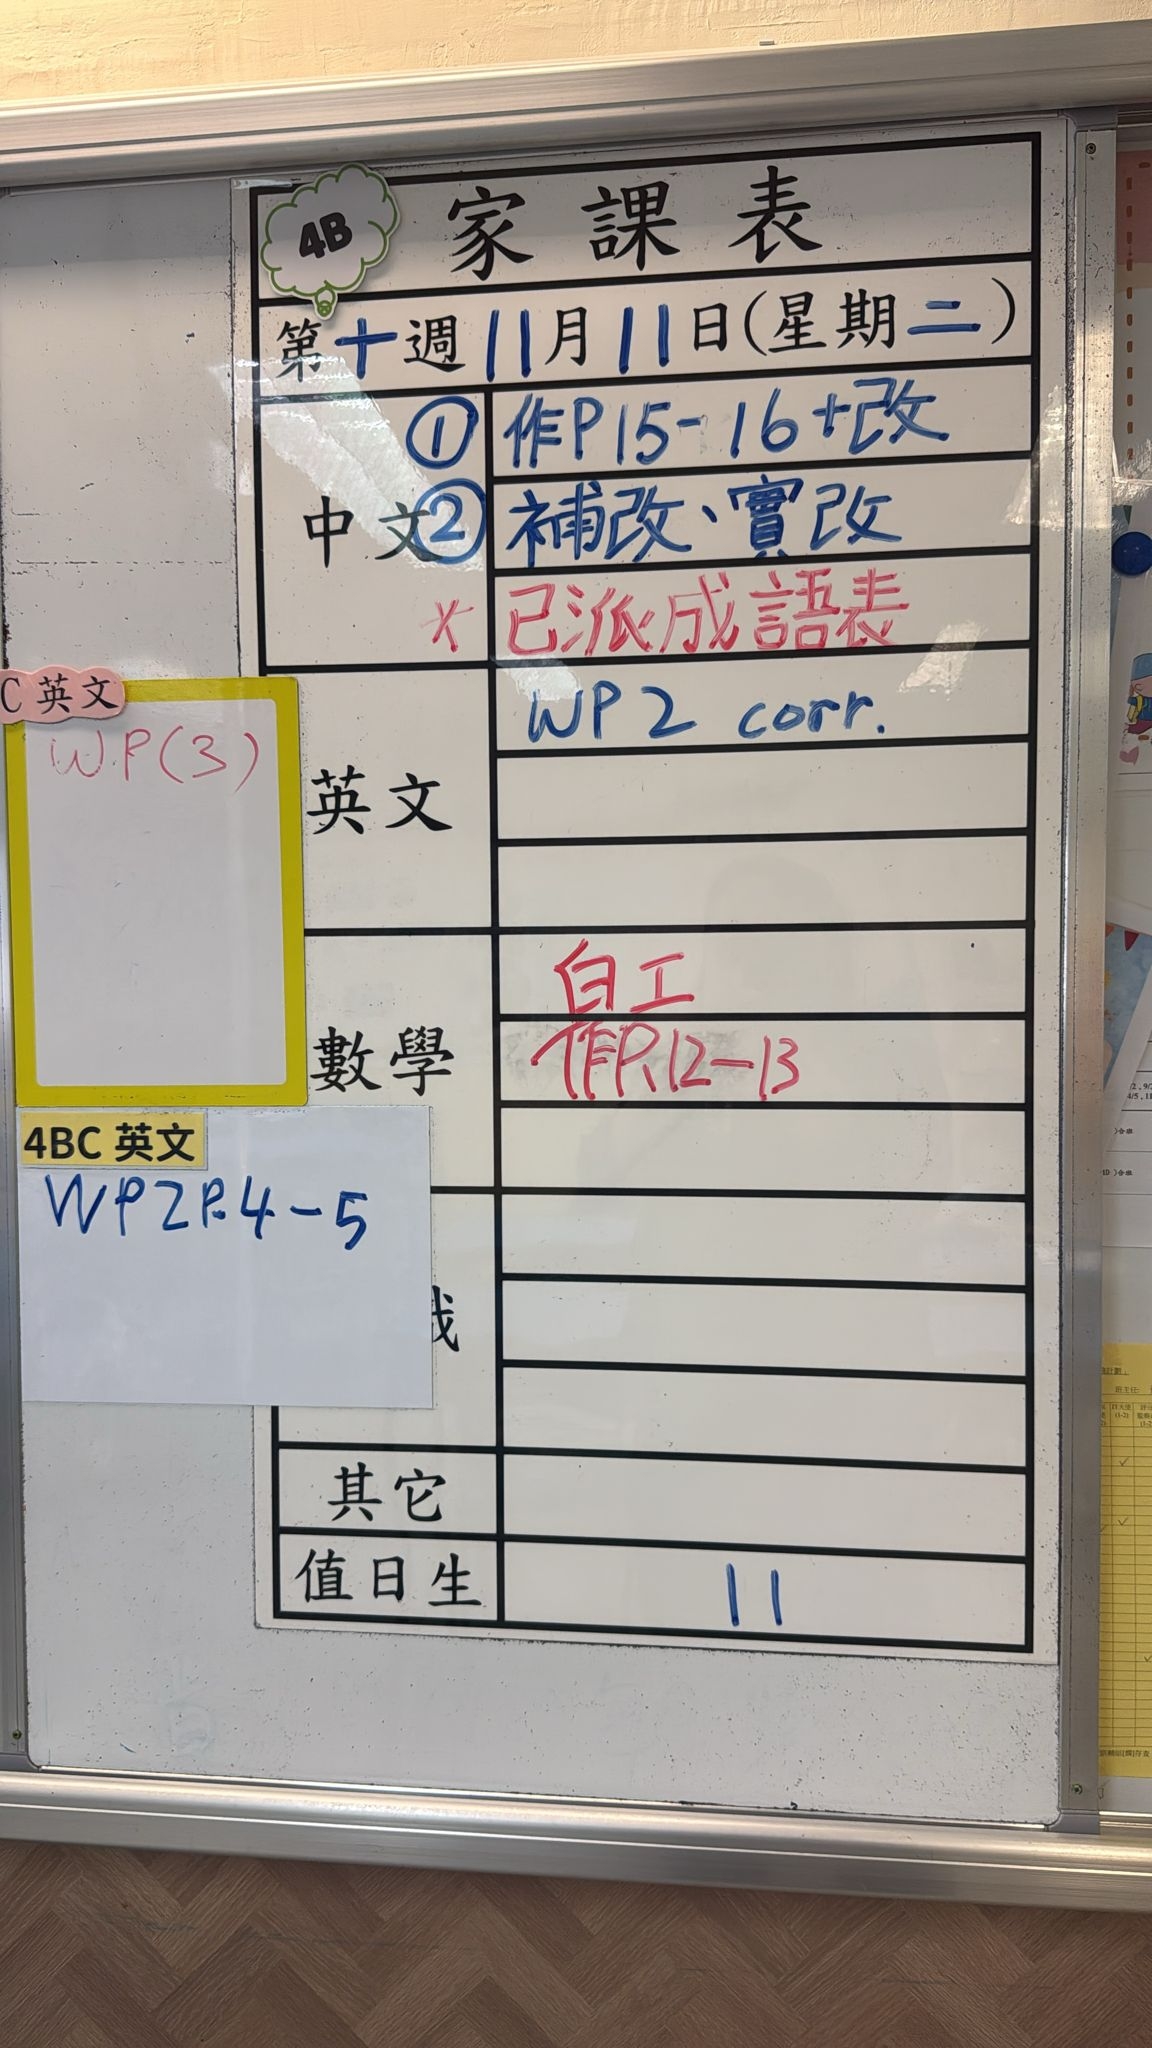 4B
家課表
第十週11月11日(星期二)
中文
① 作P15-16+改
② 補改、實改
* 已派成語表
C 英文
WP(3)
英文
WP2 corr.
數學
白工
作P.12-13
4BC 英文
WP2 P.4-5
其它
值日生
11